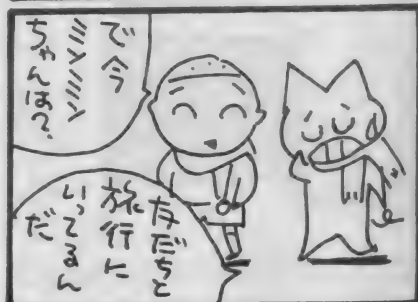 で今
ミンミン
ちゃんは?
友だちと
旅行に
いってるん
だ